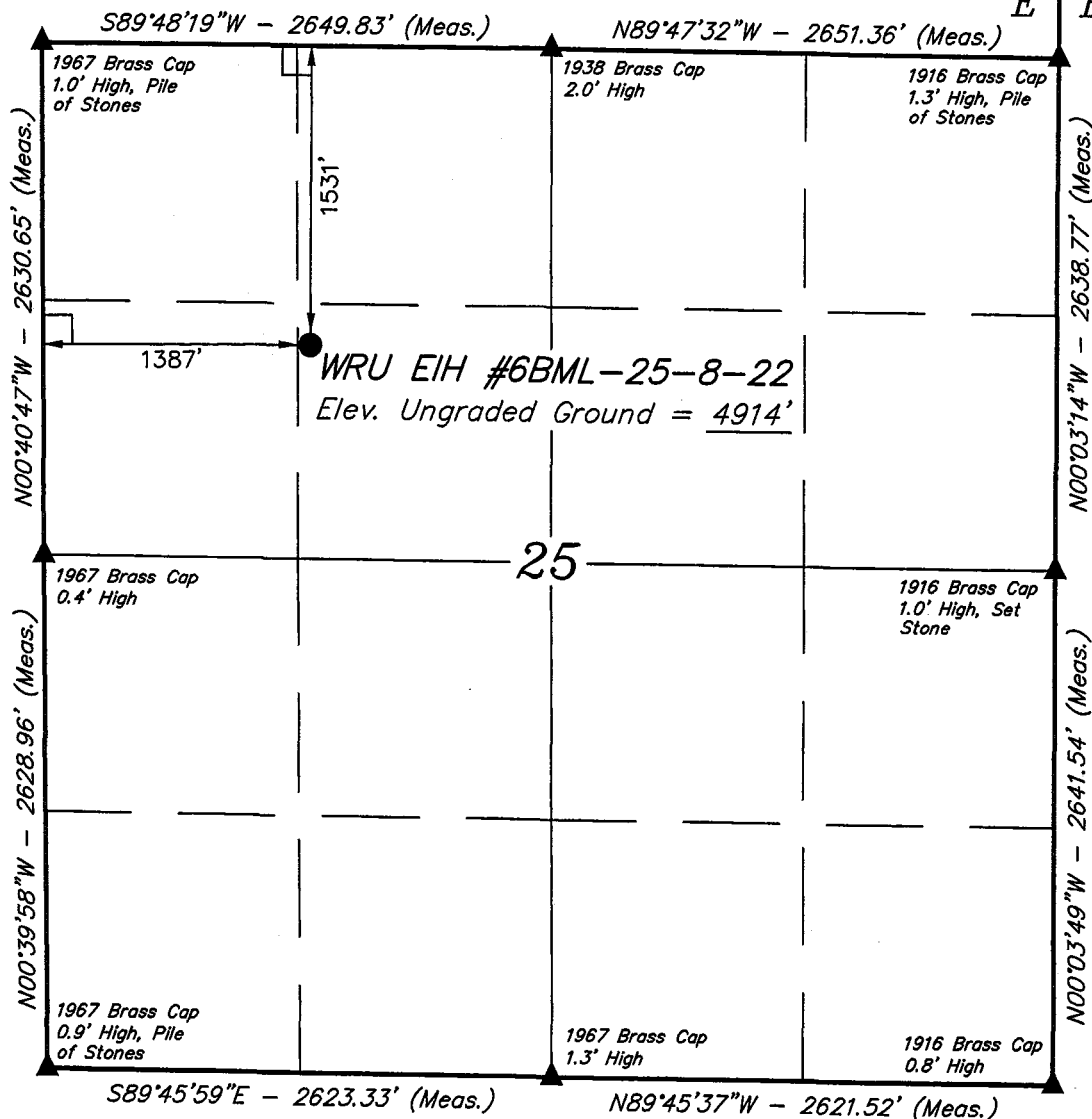 S89°48'19"W - 2649.83' (Meas.)
N89°47'32"W - 2651.36' (Meas.)
E
1967 Brass Cap
1.0' High, Pile
of Stones
1938 Brass Cap
2.0' High
1916 Brass Cap
1.3' High, Pile
of Stones
N00°40'47"W - 2630.65' (Meas.)
1531'
N00°03'14"W - 2638.77' (Meas.)
1387'
WRU EIH #6BML-25-8-22
Elev. Ungraded Ground = 4914'
25
1967 Brass Cap
0.4' High
1916 Brass Cap
1.0' High, Set
Stone
N00°39'58"W - 2628.96' (Meas.)
N00°03'49"W - 2641.54' (Meas.)
1967 Brass Cap
0.9' High, Pile
of Stones
1967 Brass Cap
1.3' High
1916 Brass Cap
0.8' High
S89°45'59"E - 2623.33' (Meas.)
N89°45'37"W - 2621.52' (Meas.)